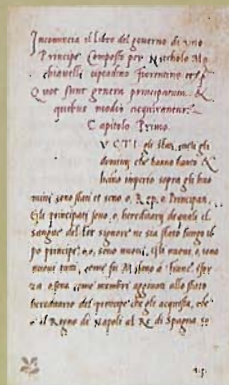 Incomincia el libro del governo di uno
Principe Composto per Nicholo Ma
chiavelli ciptadino fiorentino et p
Quot sunt genera principatum &
quibus modis acquirantur.
Capitolo Primo.
VCTI gli stati, tucti gli
dominij che hanno hauto &
hanno imperio sopra gli huo
mini sono stati et sono o Rep. o Principati,
E gli principati sono o hereditarij de quali el
sangue del lor signore ne sia stato lungo të
po principe, o e, sono nuovi, gli nuovi o sono
nuovi tutti, come fu Milano a Franc. sfor
za o sono come membri aggiunti allo stato
hereditario del principe che gli acquista, che
è il Regno di Napoli al Re di Spagna